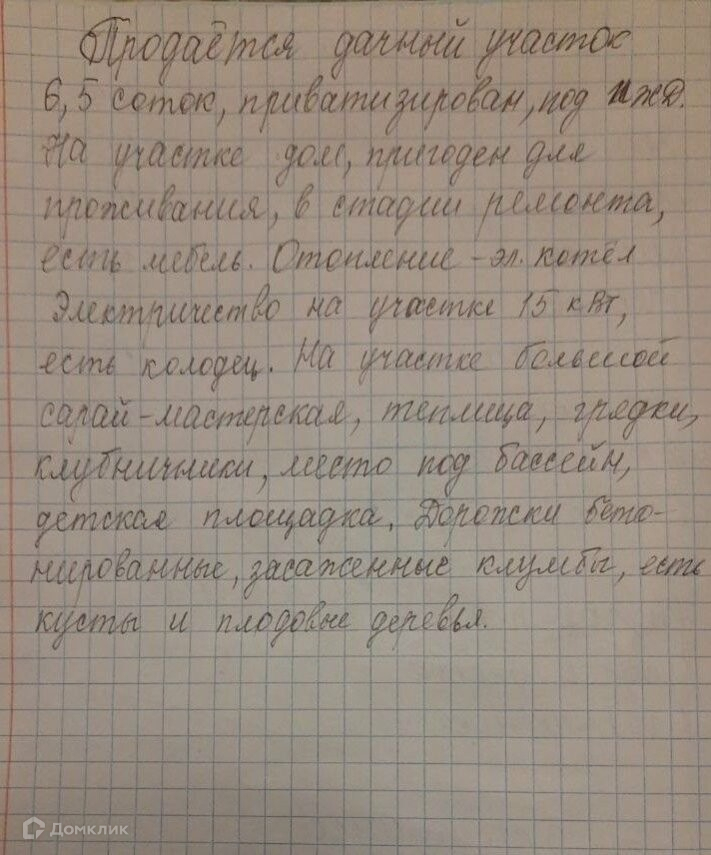 Продаётся дачный участок
6,5 соток, приватизирован, под ИЖД.
На участке дом, пригоден для
проживания, в стадии ремонта,
есть мебель. Отопление - эл. котёл
Электричество на участке 15 кВт,
есть колодец. На участке большой
сарай-мастерская, теплица, грядки,
клубничники, место под бассейн,
детская площадка. Дорожки бето-
нированные, засаженные клумбы, есть
кусты и плодовые деревья.
Домклик